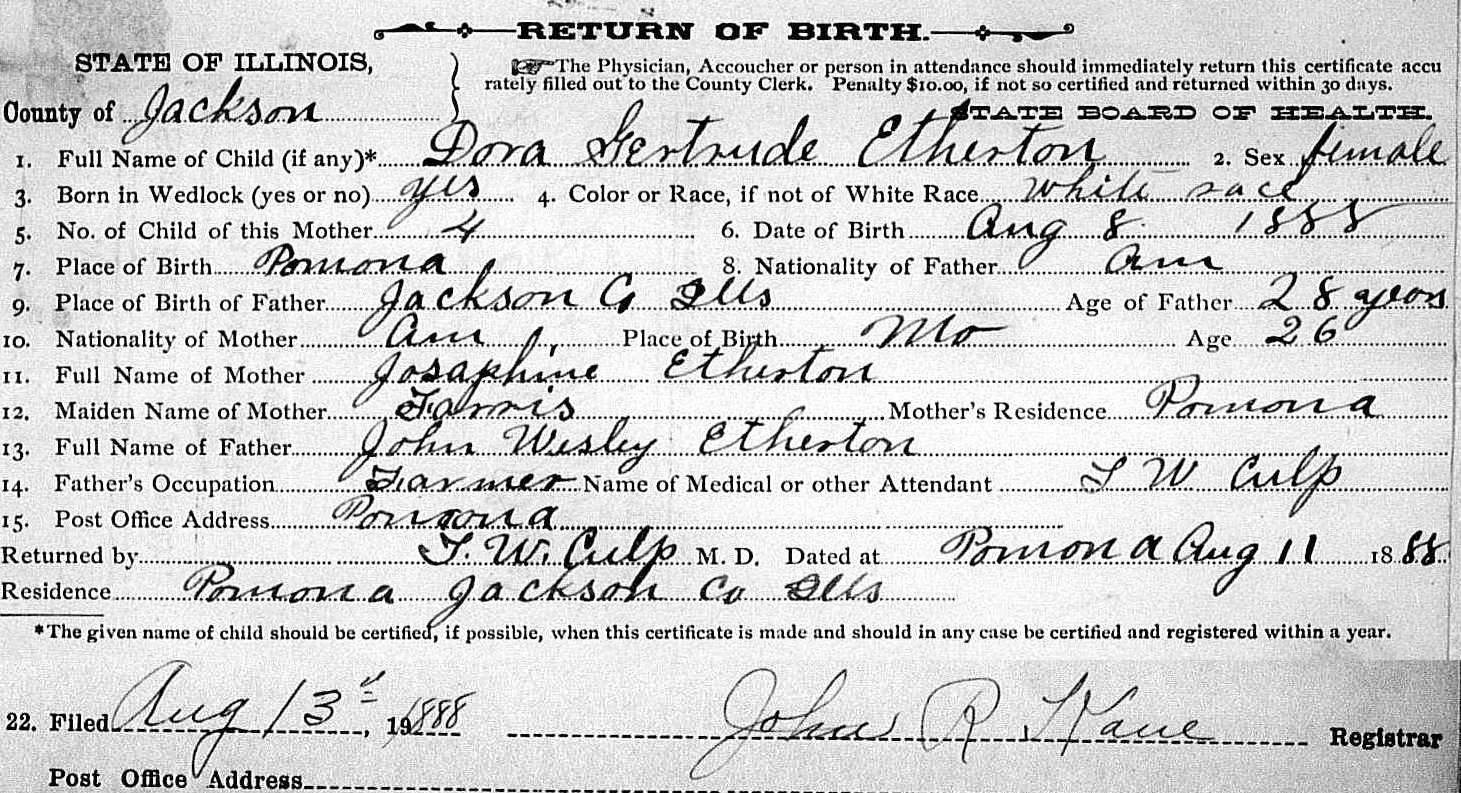 RETURN OF BIRTH.
STATE OF ILLINOIS,
The Physician, Accoucher or person in attendance should immediately return this certificate accu
rately filled out to the County Clerk. Penalty $10.00, if not so certified and returned within 30 days.
County of Jackson
STATE BOARD OF HEALTH.
1. Full Name of Child (if any)* Dora Gertrude Etherton 2. Sex female
3. Born in Wedlock (yes or no) yes 4. Color or Race, if not of White Race White race
5. No. of Child of this Mother 4 6. Date of Birth Aug 8 1888
7. Place of Birth Pomona 8. Nationality of Father Am
9. Place of Birth of Father Jackson Co Ills Age of Father 28 years
10. Nationality of Mother Am Place of Birth Mo Age 26
11. Full Name of Mother Josaphine Etherton
12. Maiden Name of Mother Farris Mother's Residence Pomona
13. Full Name of Father John Wesley Etherton
14. Father's Occupation Farmer Name of Medical or other Attendant T W Culp
15. Post Office Address Pomona
Returned by T. W. Culp M. D. Dated at Pomona Aug 11 1888
Residence Pomona Jackson Co Ills
*The given name of child should be certified, if possible, when this certificate is made and should in any case be certified and registered within a year.
22. Filed Aug 13d, 1888 John R Kane Registrar
Post Office Address